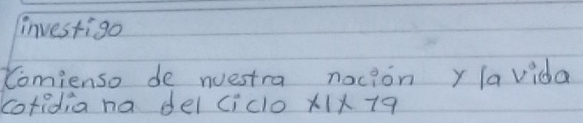 investigo
Comienso de nuestra noción y la vida
cotidia na del ciclo XIX 19